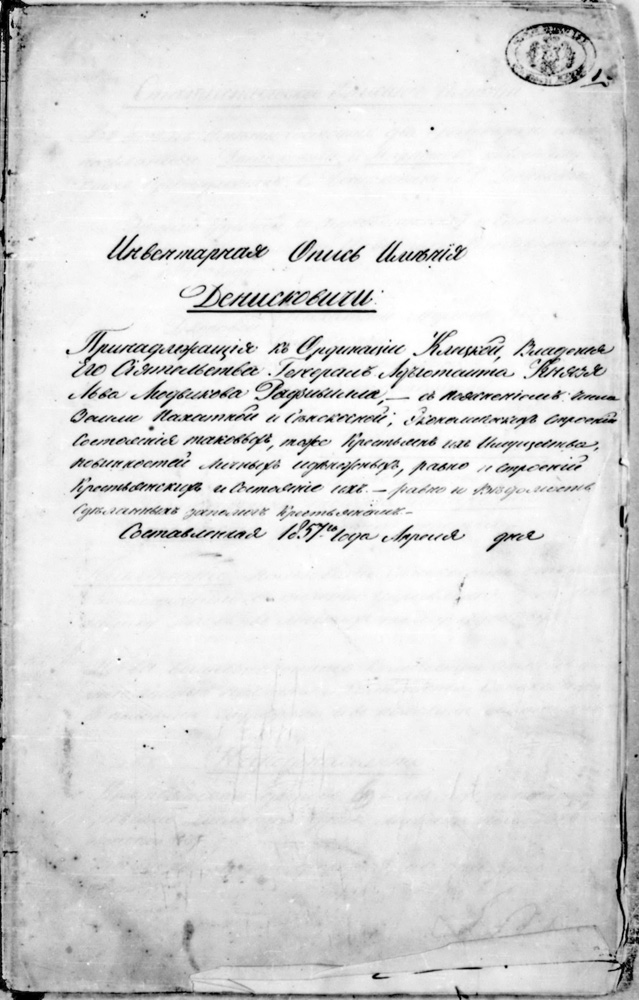 Инвентарная Опись Имѣнія
Денисковичи
Принадлежащія къ Ординаціи Клецкой, Владенья
Его Сіятельства Генералъ Адъютанта Князя
Льва Людвикова Радзивилла, — съ поясненіемъ
Земли Пахатной и Сѣнокосной, Экономическихъ Строеній
Состоянія таковыхъ, тоже Крестьянъ ихъ Имущества,
повинностей личныхъ и денежныхъ, равно и строеній
Крестьянскихъ и Состояніе ихъ. — равно и Вѣдомость
Сдѣланныхъ Крестьянами —
Составленная 1857го Года Апреля дня
1